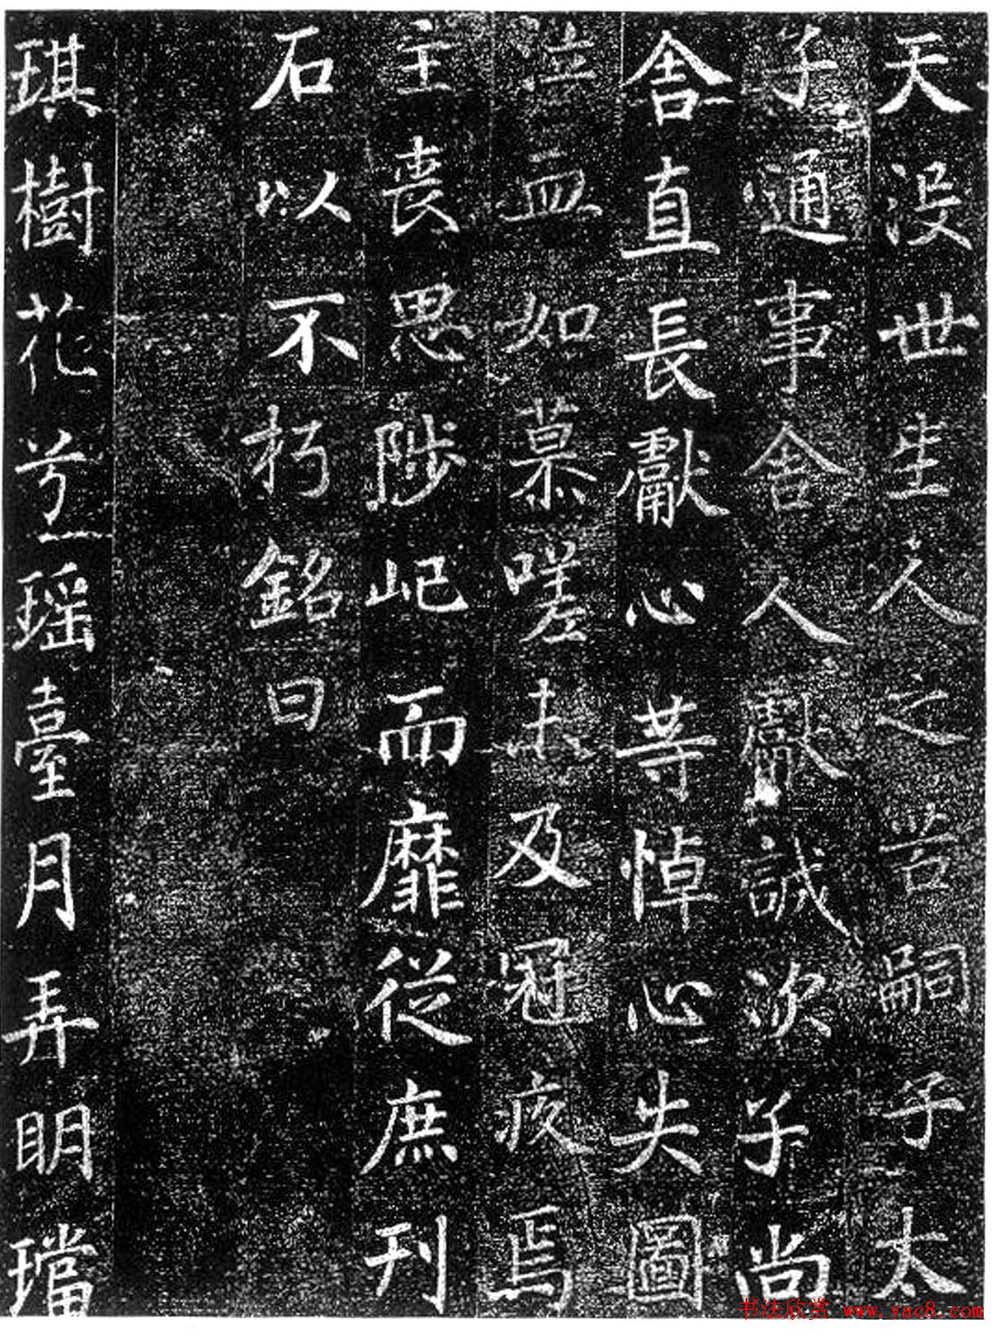 天没世生人之苦嗣子太
子通事舍人獻誠次子尚
舍直長獻心等悼心失圖
泣血如慕嗟未及冠疚焉
主丧思陟屺而靡從庶刊
石以不朽銘曰
琪樹花兮瑶臺月弄明璫
书法欣赏 www.yac8.com